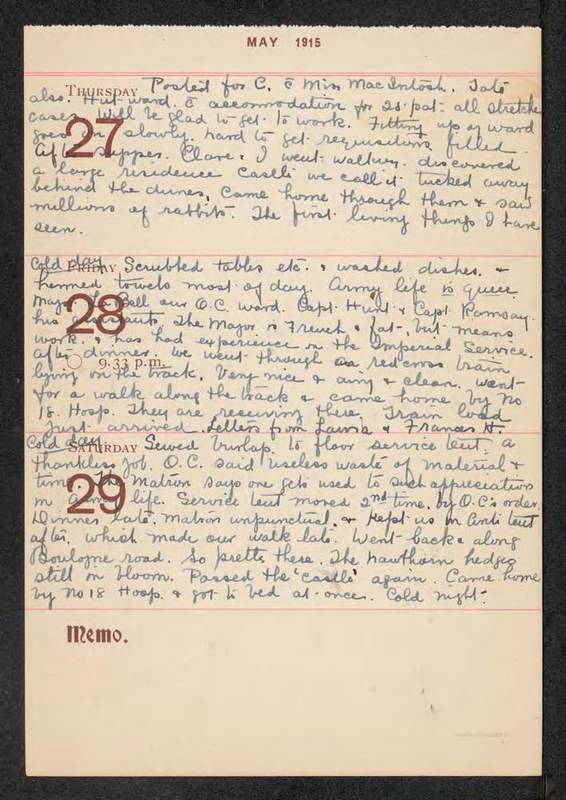 MAY 1915
THURSDAY Posted for C. c̄ Miss MacIntosh. Tate
also. Hut ward. c̄ accommodation for 28 pat - all stretcher
cases. Will be glad to get to work. Fitting up of ward
goes on slowly. hard to get requisitions filled.
27
After supper. Clare & I went walking. discovered
a large residence castle we call it tucked away
behind the dunes, Came home through them & saw
millions of rabbits. The first living things I have
seen.
Cold day
FRIDAY Scrubbed tables etc. & washed dishes. &
hemmed towels most of day. Army life is queer
28
Major La Bell our O.C. ward. Capt. Hunt & Capt. Ramsay.
his assistants. The Major is French & fat, but means
work. & has had experience in the Imperial Service.
9.33 p.m.
After dinner. We went through a red cross train
lying on the track. Very nice & airy & clean. went
for a walk along the track & came home by No
18. Hosp. They are receiving there. Train load
just arrived. Letters from Laura & Frances H.
Cold day
SATURDAY Sewed burlap. to floor service tent. a
thankless job. O.C. said useless waste of material &
time. The Matron says one gets used to such appreciation
29
in army life. Service tent moved 2nd time. by O.C's order.
Dinner late. Matron unpunctual. & kept us in Anti tent
after. which made our walk late. Went back & along
Boulogne road. So pretty there. The hawthorn hedges
still in bloom. Passed the 'castle' again. Came home
by No 18 Hosp. & got to bed at once. Cold night.
Memo.